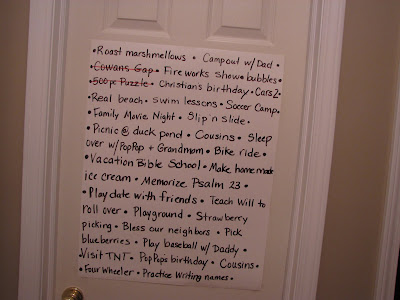 • Roast marshmellows • Campout w/ Dad •
• Cowans Gap • Fireworks show • bubbles •
• 500 pc Puzzle • Christian's birthday • Cars 2 •
• Real beach • swim lessons • Soccer Camp •
• Family Movie Night • Slip n slide •
• Picnic @ duck pond • Cousins • Sleep
over w/ PopPop + Grandmom • Bike ride •
• Vacation Bible School • Make homemade
ice cream • Memorize Psalm 23 •
• Play date with friends • Teach Will to
roll over • Playground • Strawberry
picking • Bless our neighbors • Pick
blueberries • Play baseball w/ Daddy •
• Visit TNT • PopPop's birthday • Cousins •
• Four Wheeler • Practice Writing names •